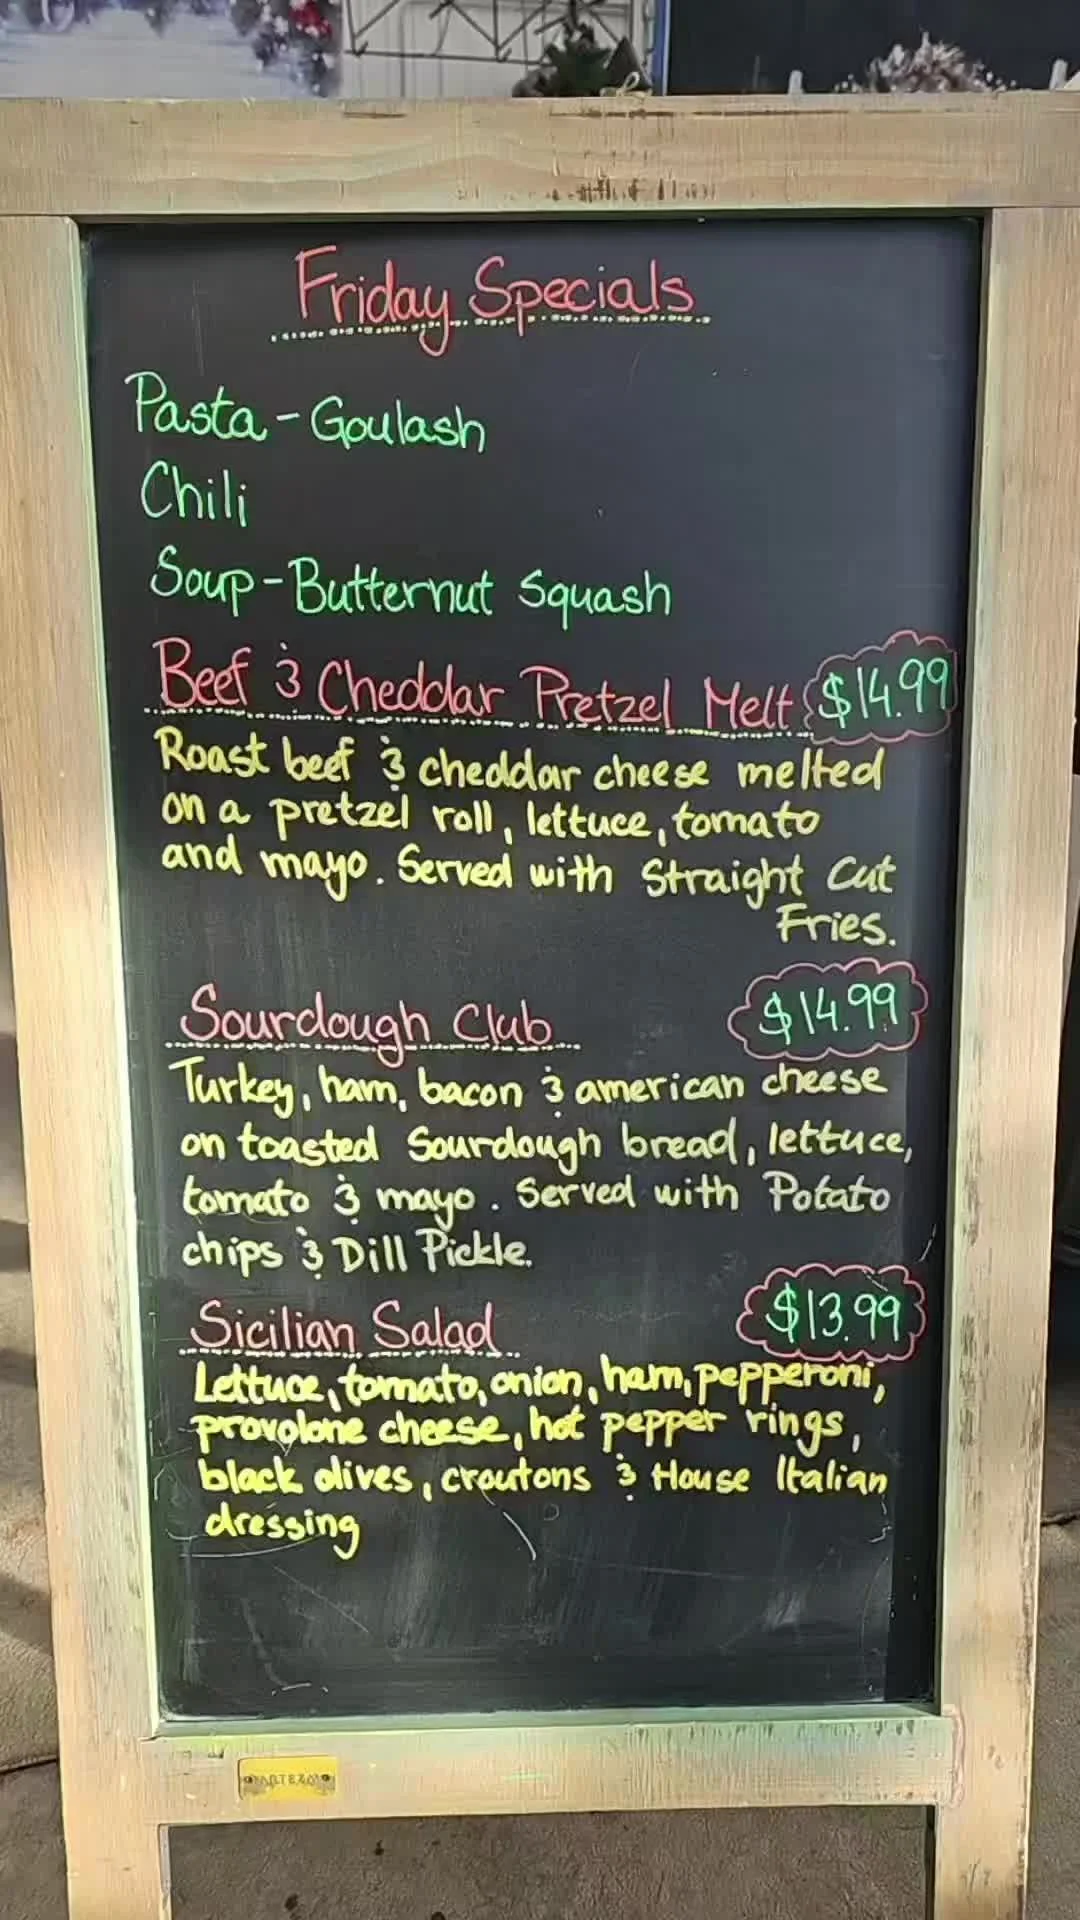 Friday Specials
Pasta - Goulash
Chili
Soup - Butternut Squash
Beef & Cheddar Pretzel Melt $14.99
Roast beef & cheddar cheese melted
on a pretzel roll, lettuce, tomato
and mayo. Served with Straight Cut
Fries.
Sourdough Club $14.99
Turkey, ham, bacon & american cheese
on toasted Sourdough bread, lettuce,
tomato & mayo. Served with Potato
chips & Dill Pickle.
Sicilian Salad $13.99
Lettuce, tomato, onion, ham, pepperoni,
provolone cheese, hot pepper rings,
black olives, croutons & House Italian
dressing
ARTEZA